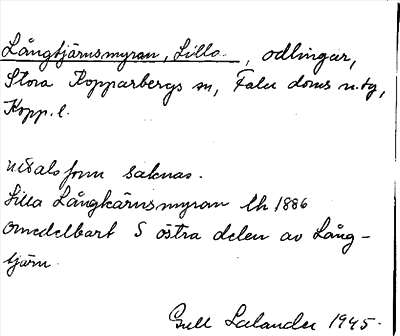 Långtjärnsmyran, Lilla, odlingar,
Stora Kopparbergs sn, Falu doms n.tg,
Kopp. l.
Uttalsform saknas.
Lilla Långkärnsmyran lk 1886
omedelbart S östra delen av Lång-
tjärn.
Gull Lalander 1945.